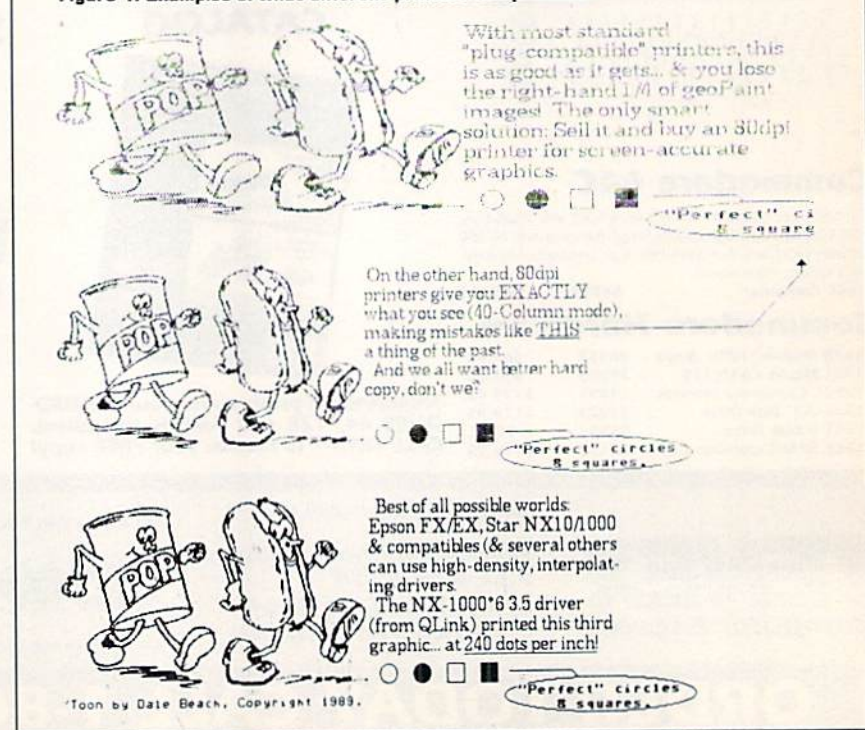 With most standard
"plug-compatible" printers, this
is as good as it gets... & you lose
the right-hand 1/4 of geoPaint
images! The only smart
solution: Sell it and buy an 80dpi
printer for screen-accurate
graphics.
POP
"Perfect" ci
8 square
On the other hand, 80dpi
printers give you EXACTLY
what you see (40-Column mode),
making mistakes like THIS
a thing of the past.
And we all want better hard
copy, don't we?
POP
"Perfect" circles
8 squares.
Best of all possible worlds:
Epson FX/EX, Star NX10/1000
& compatibles (& several others
can use high-density, interpolat-
ing drivers.
The NX-1000*6 3.5 driver
(from QLink) printed this third
graphic... at 240 dots per inch!
POP
"Perfect" circles
8 squares.
'Toon by Dale Beach, Copyright 1989.